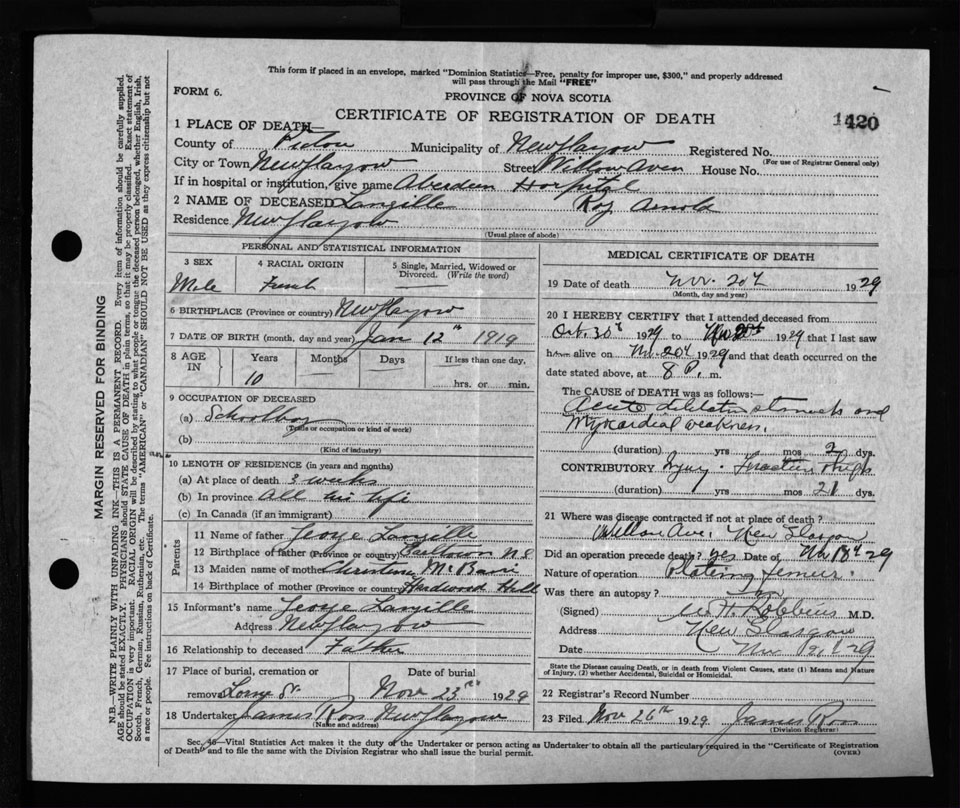 This form if placed in an envelope, marked "Dominion Statistics—Free, penalty for improper use, $300," and properly addressed
will pass through the Mail "FREE"
FORM 6.
PROVINCE OF NOVA SCOTIA
CERTIFICATE OF REGISTRATION OF DEATH
1420
1 PLACE OF DEATH
County of Pictou Municipality of New Glasgow Registered No.
(For use of Registrar General only)
City or Town New Glasgow Street Willow Aven House No.
If in hospital or institution, give name Aberdeen Hospital
2 NAME OF DECEASED Langille Roy Arnold
Residence New Glasgow
(Usual place of abode)
PERSONAL AND STATISTICAL INFORMATION
3 SEX 4 RACIAL ORIGIN 5 Single, Married, Widowed or Divorced. (Write the word)
Male French
6 BIRTHPLACE (Province or country) New Glasgow
7 DATE OF BIRTH (month, day and year) Jan 12th 1919
8 AGE IN Years Months Days If less than one day,
10 hrs. or min.
9 OCCUPATION OF DECEASED
(a) Schoolboy
(Trade or occupation or kind of work)
(b)
(Kind of industry)
10 LENGTH OF RESIDENCE (in years and months)
(a) At place of death 3 weeks
(b) In province all his life
(c) In Canada (if an immigrant)
Parents
11 Name of father George Langille
12 Birthplace of father (Province or country) N S
13 Maiden name of mother Christine
14 Birthplace of mother (Province or country) Hardwood Hill
15 Informant's name George Langille
Address New Glasgow
16 Relationship to deceased Father
17 Place of burial, cremation or removal Lorne St. Date of burial Nov 23rd 1929
18 Undertaker James Ross New Glasgow
(Name and address)
MEDICAL CERTIFICATE OF DEATH
19 Date of death Nov. 20th 1929
(Month, day and year)
20 I HEREBY CERTIFY that I attended deceased from
Oct. 30th 1929 to Nov 20th 1929 that I last saw
him alive on Nov. 20th 1929 and that death occurred on the
date stated above, at 8 P. m.
The CAUSE of DEATH was as follows:
Acute dilatation stomach and
Myocardial weakness.
(duration) yrs mos 2 dys.
CONTRIBUTORY Injury. Fracture Thigh
(duration) yrs mos 21 dys.
21 Where was disease contracted if not at place of death?
Willow Ave. New Glasgow
Did an operation precede death? yes Date of Nov 18th 29
Nature of operation Plating femur.
Was there an autopsy?
(Signed) W. H. Robbins M.D.
Address New Glasgow
Date Nov 29
State the Disease causing Death, or in death from Violent Causes, state (1) Means and Nature
of Injury, (2) whether Accidental, Suicidal or Homicidal.
22 Registrar's Record Number
23 Filed Nov 26th 1929 James Ross
(Division Registrar)
Sec. 40—Vital Statistics Act makes it the duty of the Undertaker or person acting as Undertaker to obtain all the particulars required in the "Certificate of Registration
of Death" and to file the same with the Division Registrar who shall issue the burial permit.
(OVER)
MARGIN RESERVED FOR BINDING
N.B.—WRITE PLAINLY WITH UNFADING INK—THIS IS A PERMANENT RECORD. Every item of information should be carefully supplied.
AGE should be stated EXACTLY. PHYSICIANS should STATE CAUSE OF DEATH in plain terms, so that it may be properly classified. Exact statement of
OCCUPATION is very important. RACIAL ORIGIN will be described by stating to what people or tongue the deceased person belonged, whether English, Irish,
Scotch, French, German, Russian, Ruthenian, etc. The terms "AMERICAN" or "CANADIAN" SHOULD NOT BE USED as they express citizenship but not
a race or people. Fee instructions on back of Certificate.